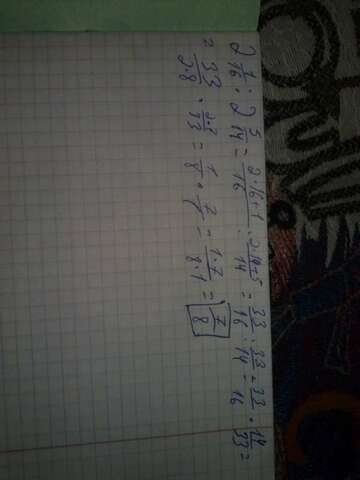 2 1/16 : 2 5/14 = 2·16+1/16 : 2·14+5/14 = 33/16 : 33/14 = 33/16 · 14/33 =
= 33/2·8 · 2·7/33 = 1/8 · 7/1 = 1·7/8·1 = 7/8